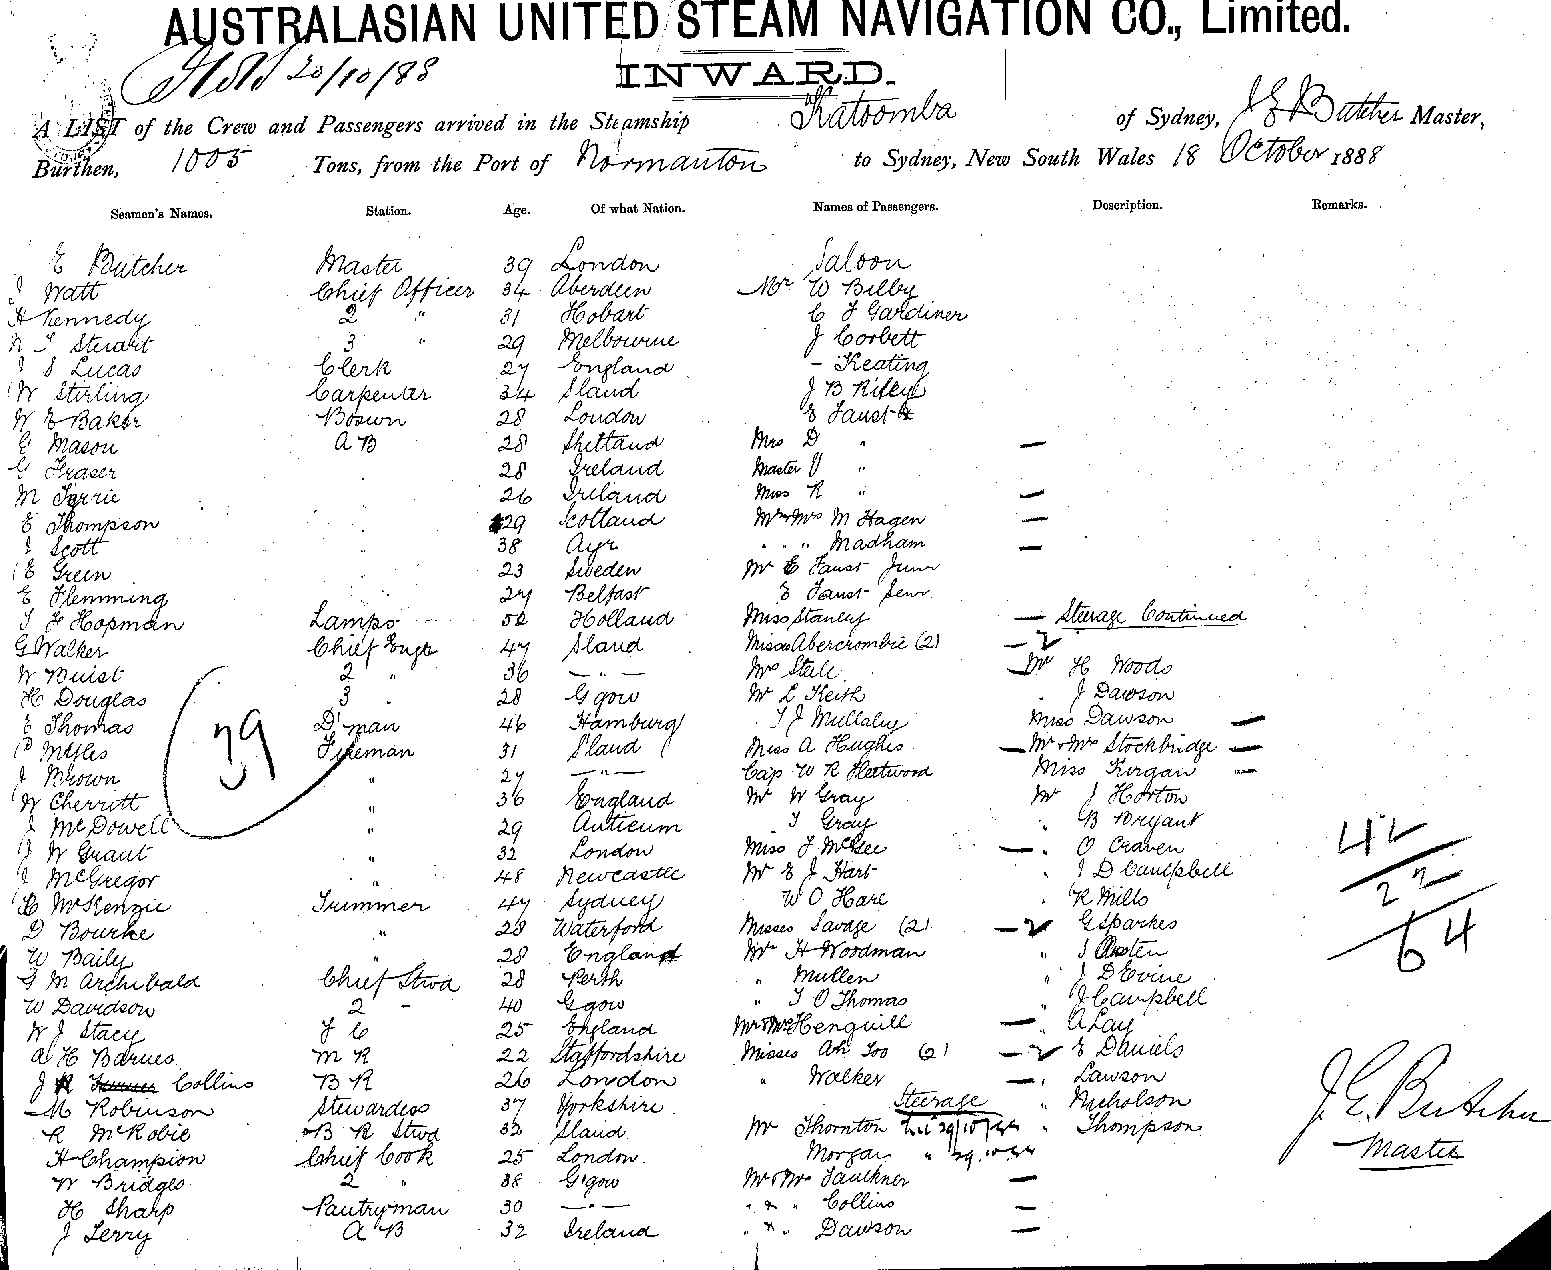 AUSTRALASIAN UNITED STEAM NAVIGATION CO., Limited.
20/10/88
INWARD.
A LIST of the Crew and Passengers arrived in the Steamship Katoomba of Sydney, J E Butcher Master,
Burthen, 1005 Tons, from the Port of Normanton to Sydney, New South Wales 18 October 1888
Seamen's Names. Station. Age. Of what Nation. Names of Passengers. Description. Remarks.
E Butcher Master 39 London Saloon
J Watt Chief Officer 34 Aberdeen Mr W Bilby
H Kennedy 2 " 31 Hobart C F Gardiner
N T Stewart 3 " 29 Melbourne J Corbett
J S Lucas Clerk 27 England - Keating
W Stirling Carpenter 34 Sland J B Riley
W E Baker Bosun 28 London E Faust
G Mason A B 28 Shetland Mrs D " —
G Fraser 28 Ireland Master V "
M Ferrie 26 Ireland Miss R " —
E Thompson 29 Scotland Mr & Mrs M Hagen —
J Scott 38 Ayr " " " Madham —
E Green 23 Sweden Mr E Faust Junr
E Flemming 27 Belfast E Faust Senr
T F Hopman Lamps Holland Miss Stanley — Steerage Continued
G Walker Chief Engr 47 Sland Misses Abercrombie (2) — 2
W Buist 2 " 36 — " — Mrs Stell — Mr H Woods
H Douglas 3 " 28 Ggow Mr L Keith " J Dawson
E Thomas D'man 46 Hamburg T J Mullaly Miss Dawson —
39
P McIles Fireman 31 S'land Miss A Hughes — Mr & Mrs Stockbridge —
J Brown " 27 — " — Cap W R Fleetwood Miss Furgan —
W Cherritt " 36 England Mr W Gray Mr J Horton
J McDowell " 29 Anticum T Gray " B Bryant
J W Grant " 32 London Miss F McGee — " O Craven
J McGregor " 48 Newcastle Mr E J Hart " J D Campbell
H McKenzie Trimmer 47 Sydney W O Hare " R Mills
D Bourke " 28 Waterford Misses Savage (2) — 2 G Sparkes
W Baily " 28 England Mr H Woodman "
G M Archibald Chief Stwd 28 Perth " Mullen " J D Evine
W Davidson 2 - 40 Ggow " T O Thomas " J Campbell
W J Stacy F C 25 England Mr & Mrs Henquill — " A Lay
A H Barnes M R 22 Staffordshire Misses Ah Foo (2) — 2 E Daniels
J Collins B R 26 London " Walker — " Lawson
M Robinson Stewardess 37 Yorkshire Steerage " Nicholson
R McRobie B R Stwd 32 Sland Mr Thornton " Thompson
H Champion Chief Cook 25 London Morgan "
W Bridges 2 " 38 G'gow Mr & Mrs Faulkner —
H Sharp Pantryman 30 — " — " & " Collins —
J Terry A B 32 Ireland " & " Dawson —
42
22
64
J. E. Butcher
Master